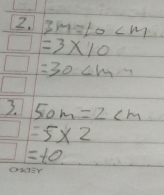 2. 3m=10 cm
=3×10
=30 cm
3. 50m=2 cm
=5×2
=10